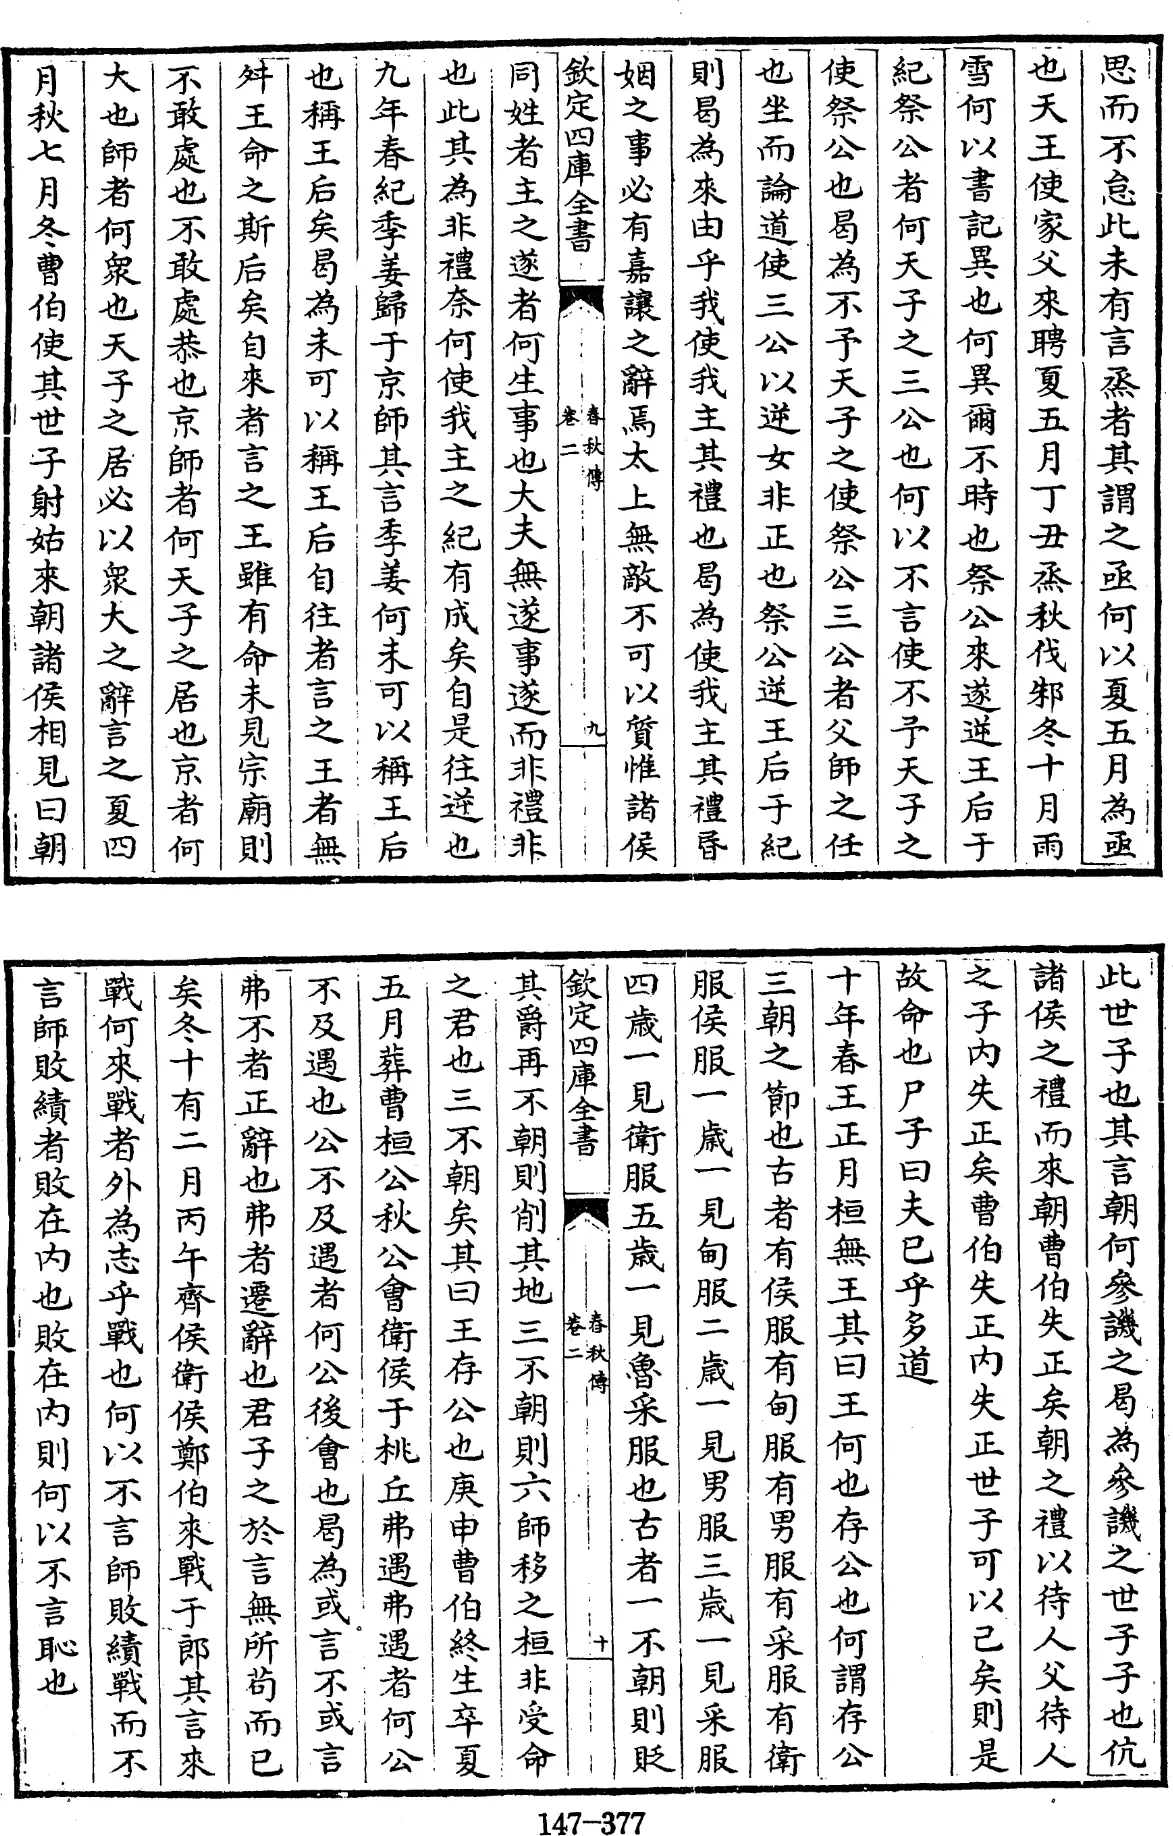 思而不怠此未有言烝者其謂之亟何以夏五月為亟
也天王使家父來聘夏五月丁丑烝秋伐邾冬十月雨
雪何以書記異也何異爾不時也祭公來遂逆王后于
紀祭公者何天子之三公也何以不言使不予天子之
使祭公也曷為不予天子之使祭公三公者父師之任
也坐而論道使三公以逆女非正也祭公逆王后于紀
則曷為來由乎我使我主其禮也曷為使我主其禮昏
姻之事必有嘉讓之辭焉太上無敵不可以質惟諸侯
欽定四庫全書 春秋傳 卷二 九
同姓者主之遂者何生事也大夫無遂事遂而非禮非
也此其為非禮奈何使我主之紀有成矣自是往逆也
九年春紀季姜歸于京師其言季姜何未可以稱王后
也稱王后矣曷為未可以稱王后自往者言之王者無
外王命之斯后矣自來者言之王雖有命未見宗廟則
不敢處也不敢處恭也京師者何天子之居也京者何
大也師者何衆也天子之居必以衆大之辭言之夏四
月秋七月冬曹伯使其世子射姑來朝諸侯相見曰朝
此世子也其言朝何參譏之曷為參譏之世子子也伉
諸侯之禮而來朝曹伯失正矣朝之禮以待人父待人
之子内失正矣曹伯失正内失正世子可以已矣則是
故命也尸子曰夫已乎多道
十年春王正月桓無王其曰王何也存公也何謂存公
三朝之節也古者有侯服有甸服有男服有采服有衛
服侯服一歲一見甸服二歲一見男服三歲一見采服
四歲一見衛服五歲一見魯采服也古者一不朝則貶
欽定四庫全書 春秋傳 卷二 十
其爵再不朝則削其地三不朝則六師移之桓非受命
之君也三不朝矣其曰王存公也庚申曹伯終生卒夏
五月葬曹桓公秋公會衛侯于桃丘弗遇弗遇者何公
不及遇也公不及遇者何公後會也曷為或言不或言
弗不者正辭也弗者遷辭也君子之於言無所苟而已
矣冬十有二月丙午齊侯衛侯鄭伯來戰于郎其言來
戰何來戰者外為志乎戰也何以不言師敗績戰而不
言師敗績者敗在内也敗在内則何以不言恥也
147-377